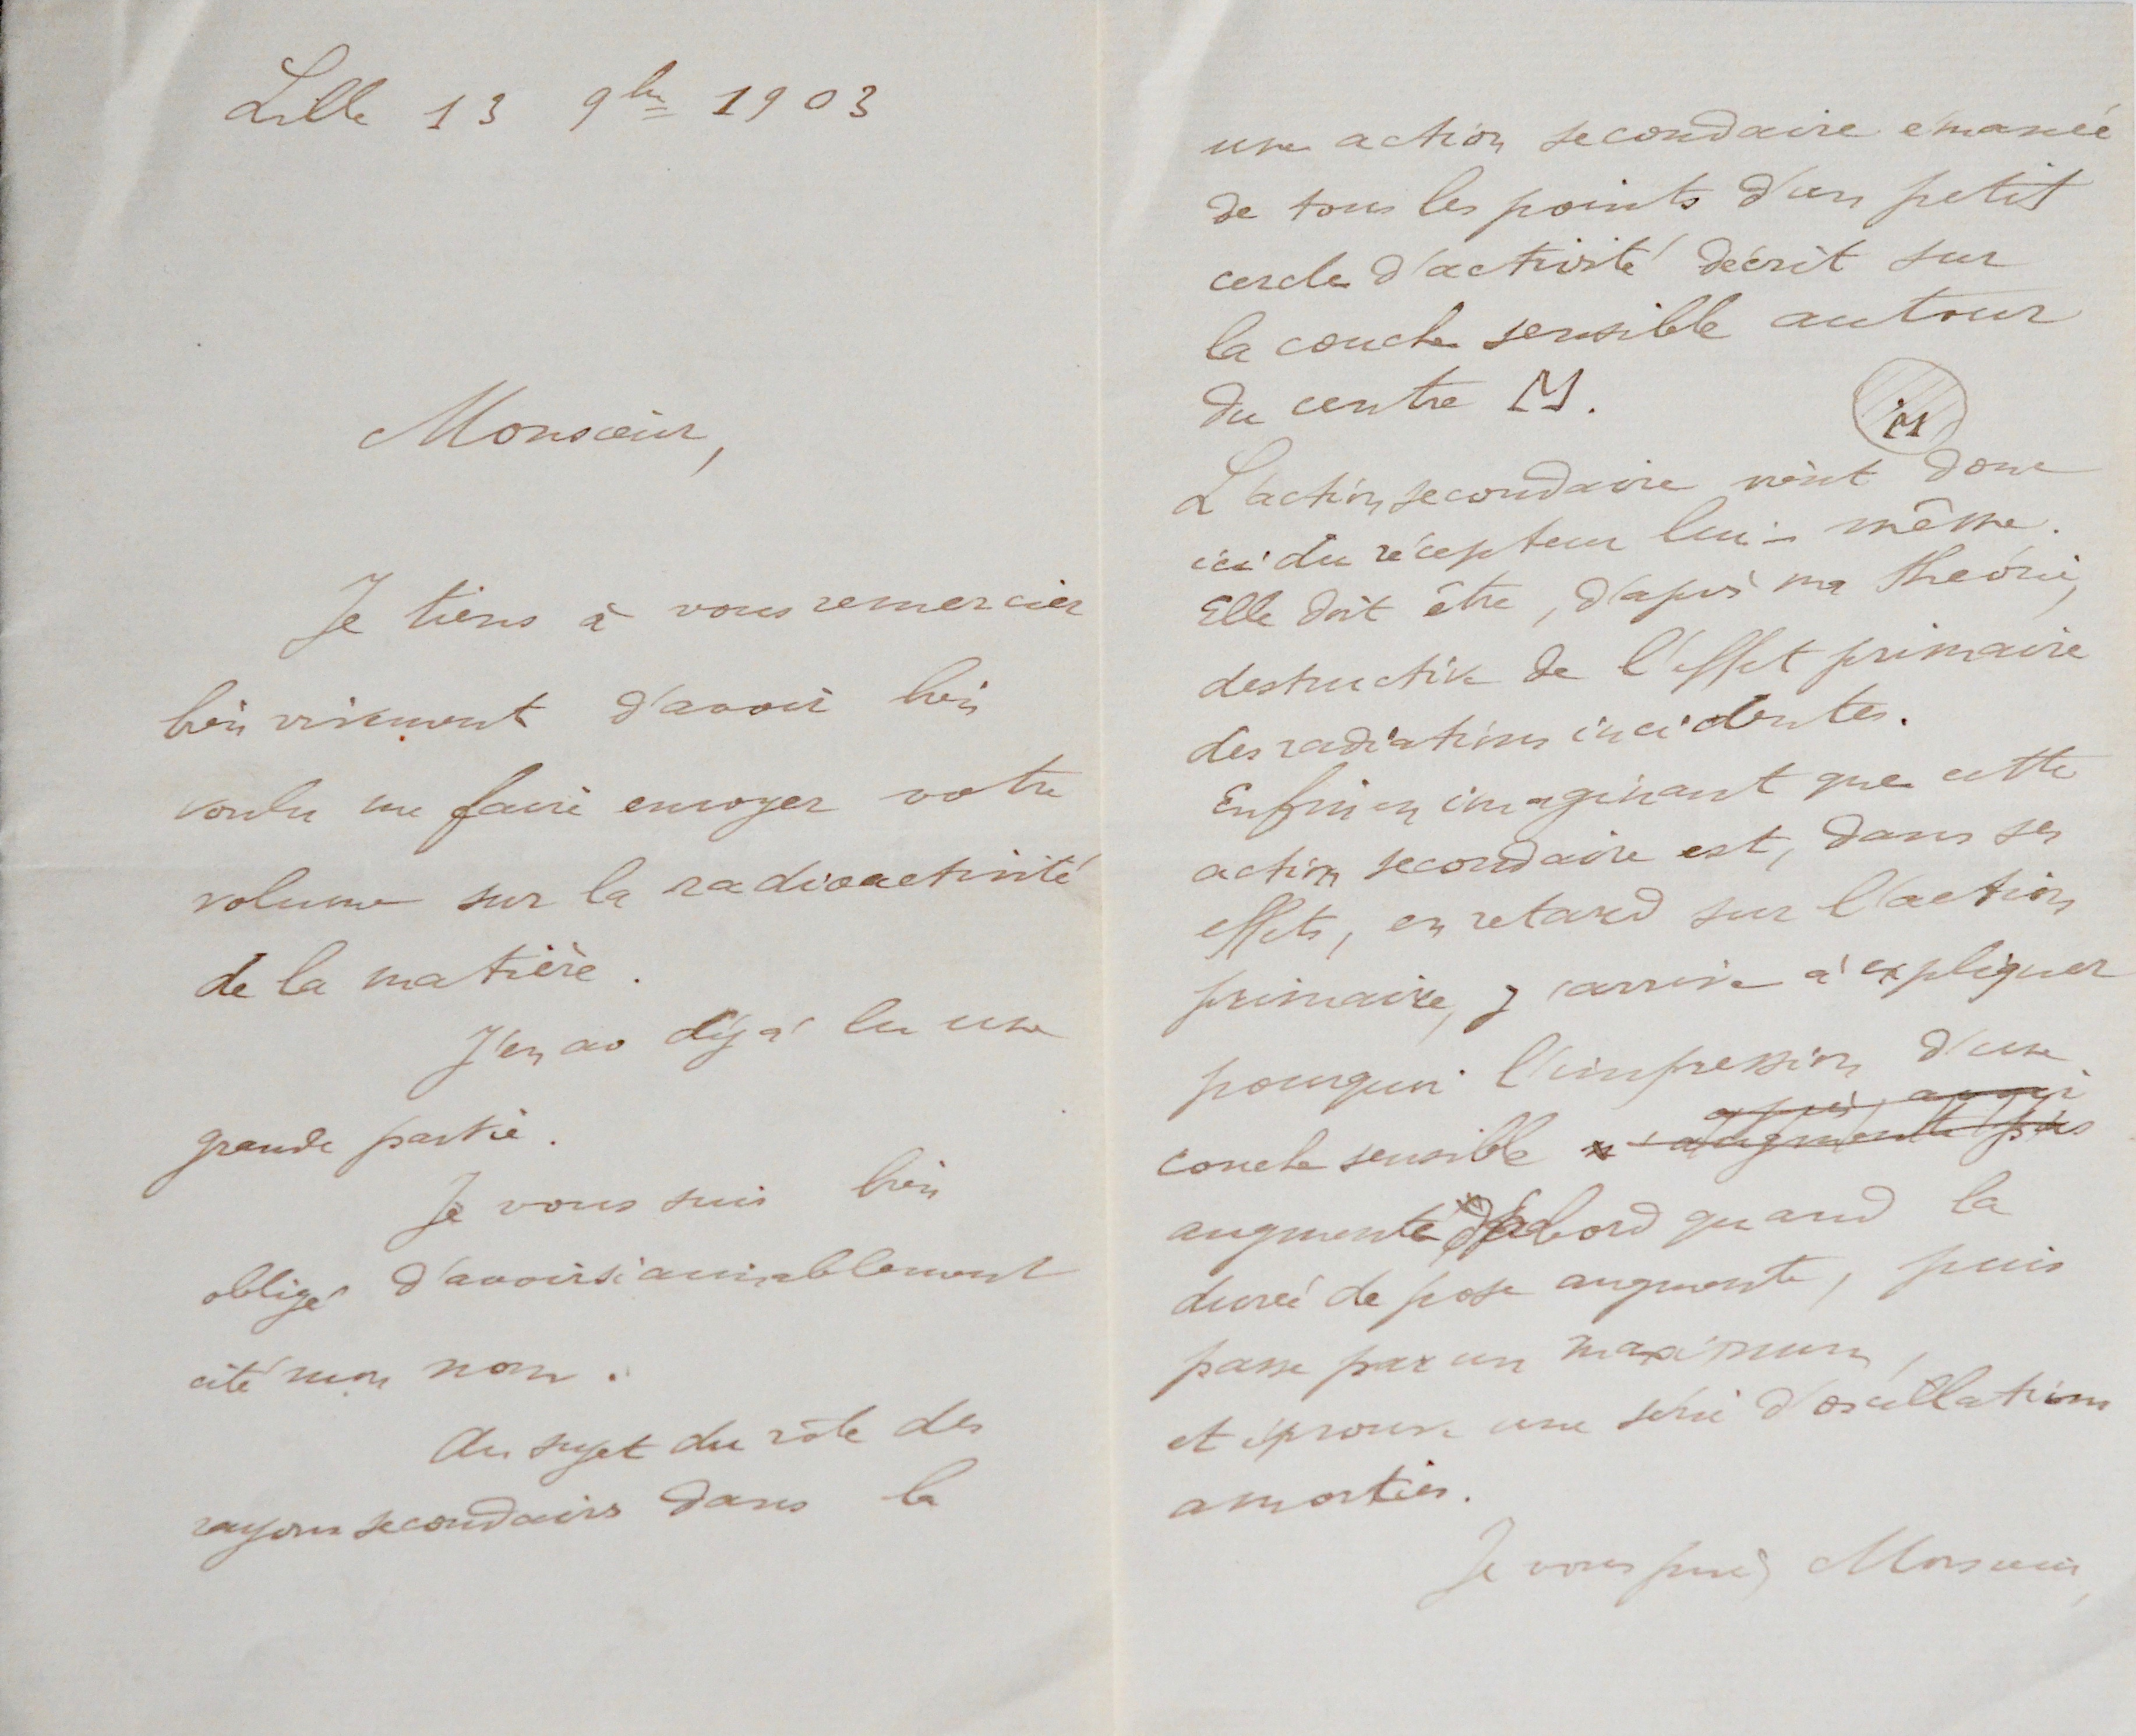 Lille 13 9bre 1903
Monsieur,
Je tiens à vous remercier
bien vivement d'avoir bien
voulu me faire envoyer votre
volume sur la radioactivité
de la matière.
J'en ai déjà lu une
grande partie.
Je vous suis bien
obligé d'avoir si aimablement
cité mon nom.
Au sujet du rôle des
rayons secondaires dans la
une action secondaire émanée
de tous les points d'un petit
cercle d'activité décrit sur
la couche sensible autour
du centre M.
M
L'action secondaire vient donc
ici du récepteur lui-même.
Elle doit être, d'après ma théorie,
destructive de l'effet primaire
des radiations incidentes.
Enfin en imaginant que cette
action secondaire est, dans ses
effets, en retard sur l'action
primaire, j'arrive à expliquer
pourquoi l'impression d'une
après avoir
couche sensible n'augmente pas
augmente d'abord quand la
durée de pose augmente, puis
passe par un maximum,
et éprouve une série d'oscillations
amorties.
Je vous prie, Monsieur,